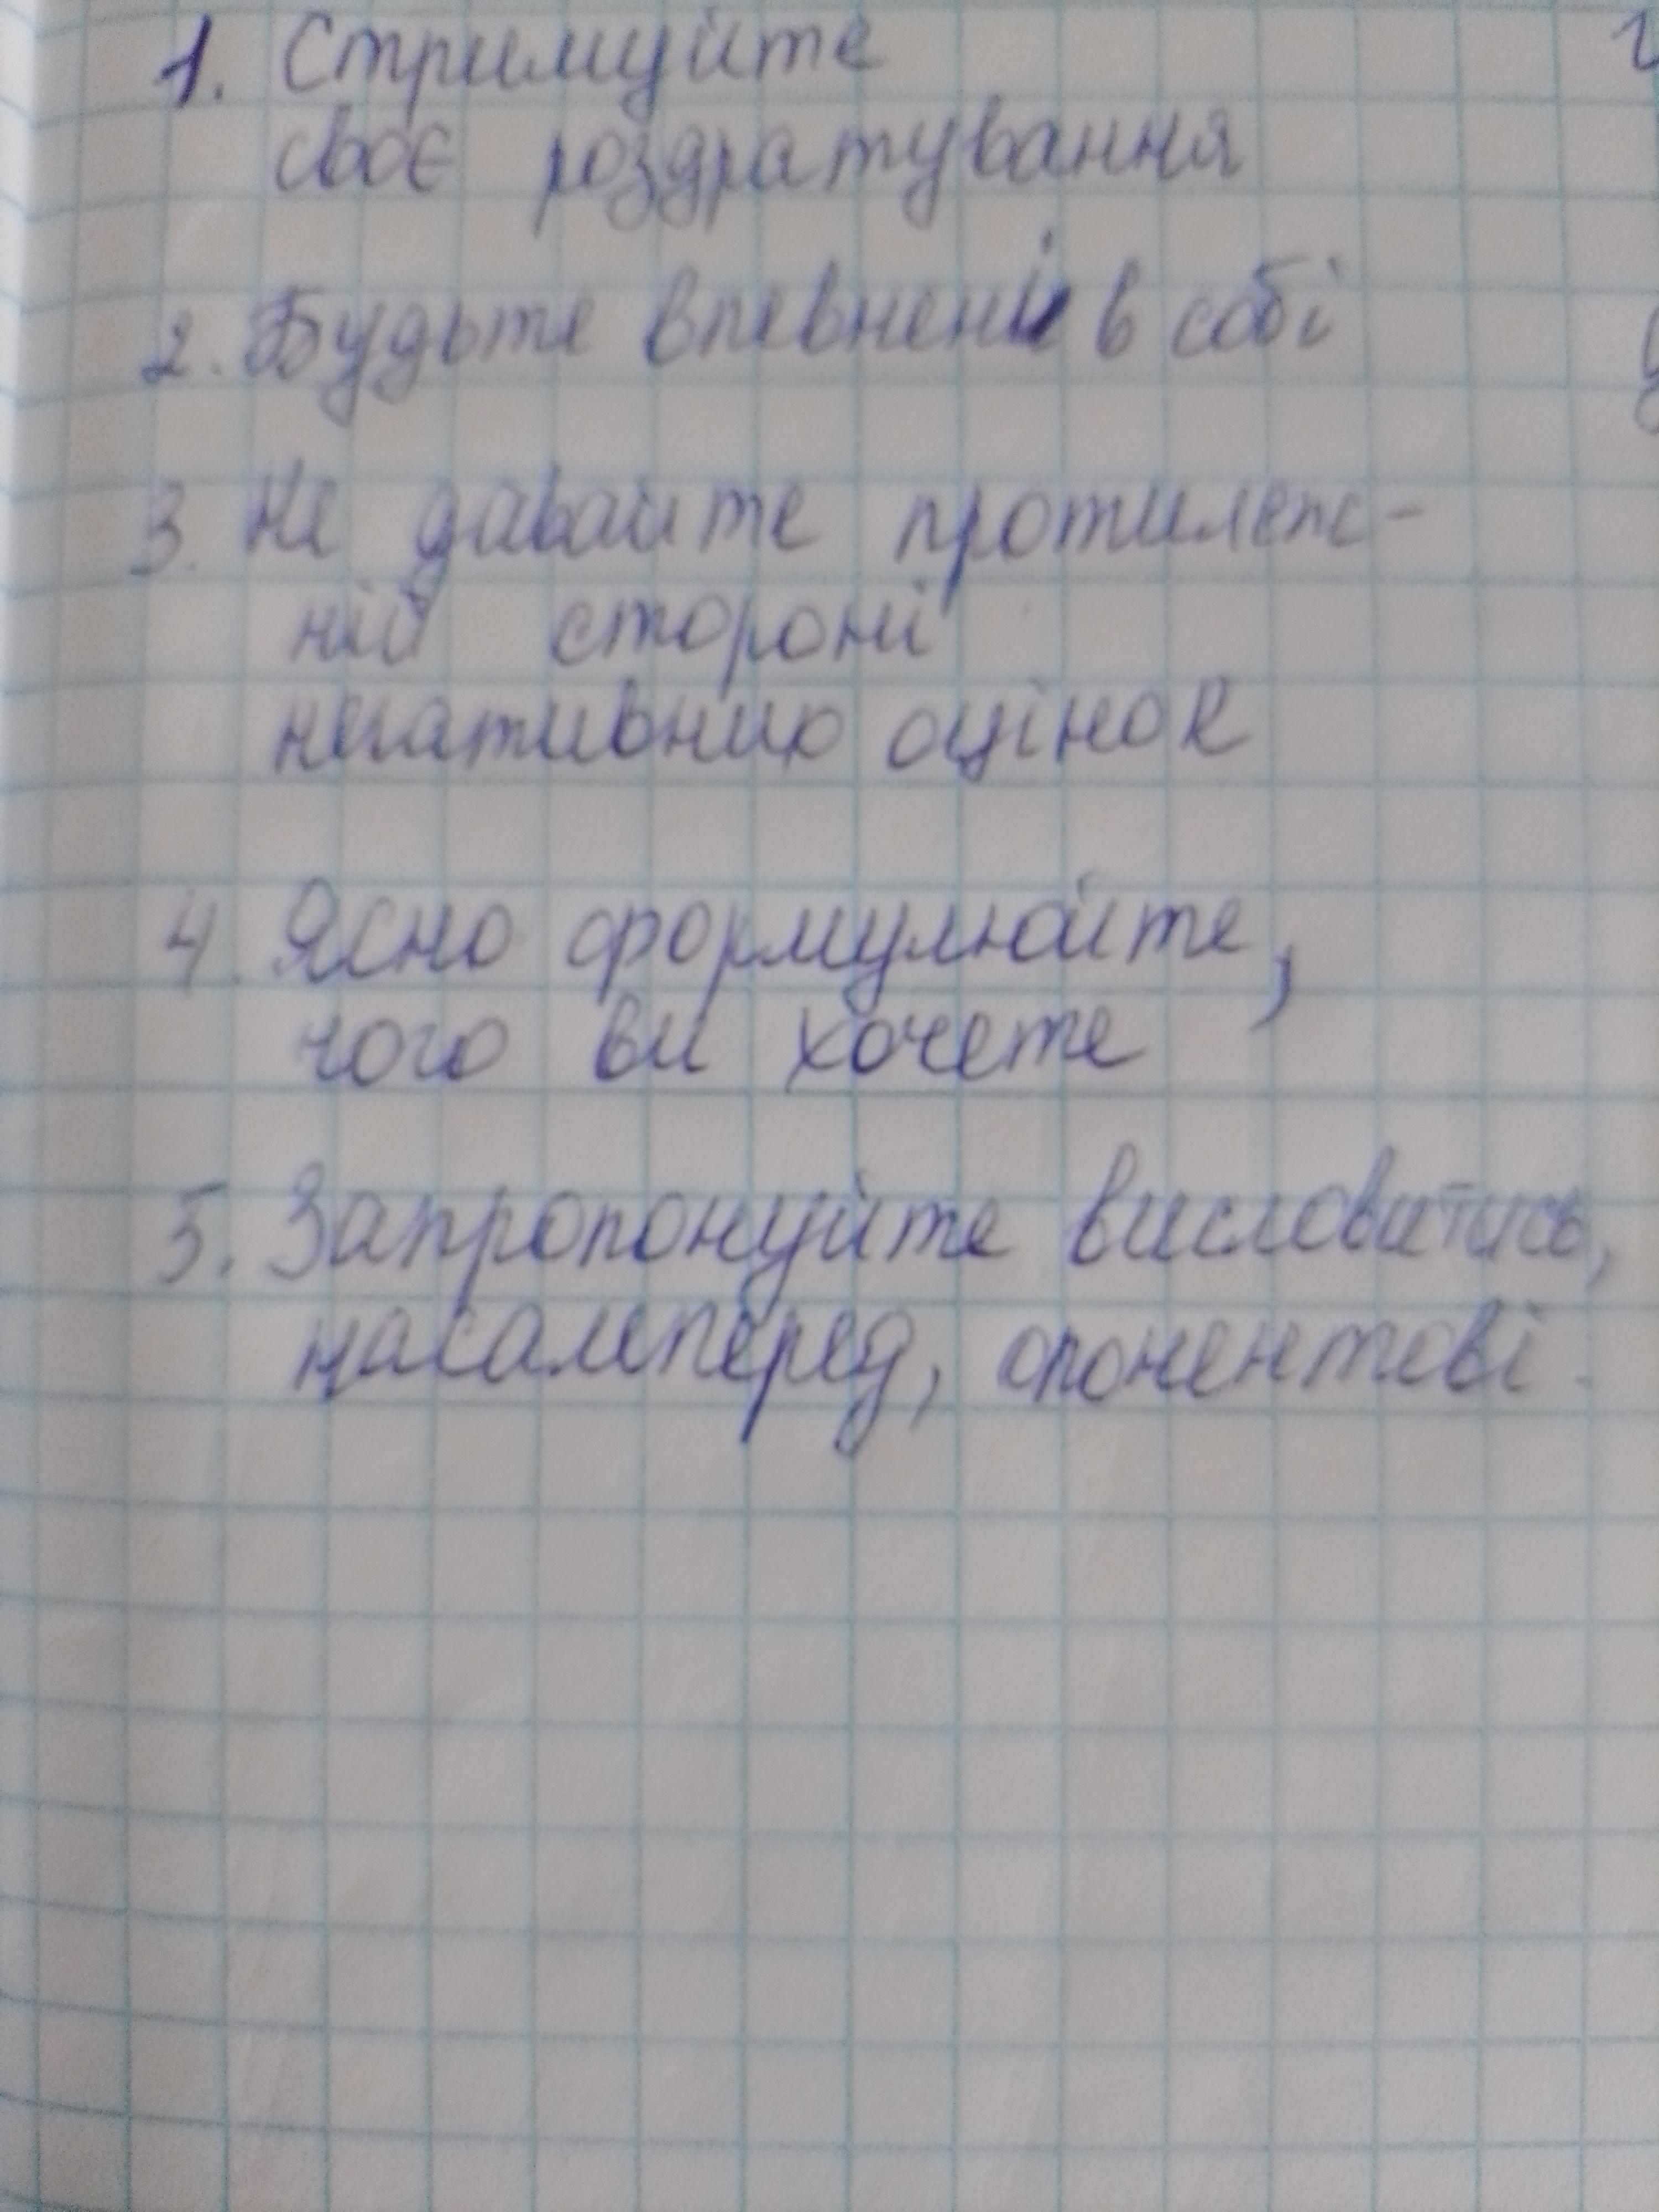 1. Стримуйте
своє роздратування
2. Будьте впевнені в собі
3. Не давайте протилеж-
ній стороні
негативних оцінок
4. Ясно формулюйте,
чого ви хочете
5. Запропонуйте висловитись,
насамперед, опонентові.